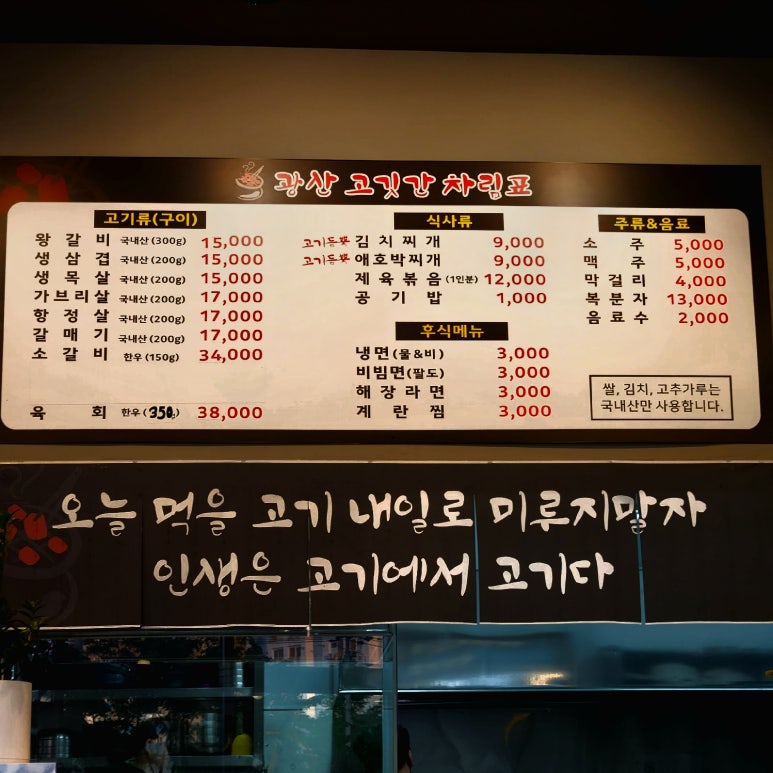 광산 고깃간 차림표
고기류(구이)
왕갈비 국내산(300g) 15,000
생삼겹 국내산(200g) 15,000
생목살 국내산(200g) 15,000
가브리살 국내산(200g) 17,000
항정살 국내산(200g) 17,000
갈매기 국내산(200g) 17,000
소갈비 한우(150g) 34,000
육회 한우(350g) 38,000
식사류
고기듬뿍 김치찌개 9,000
고기듬뿍 애호박찌개 9,000
제육볶음(1인분) 12,000
공기밥 1,000
후식메뉴
냉면(물&비) 3,000
비빔면(팔도) 3,000
해장라면 3,000
계란찜 3,000
주류&음료
소주 5,000
맥주 5,000
막걸리 4,000
복분자 13,000
음료수 2,000
쌀, 김치, 고추가루는
국내산만 사용합니다.
오늘 먹을 고기 내일로 미루지말자
인생은 고기에서 고기다